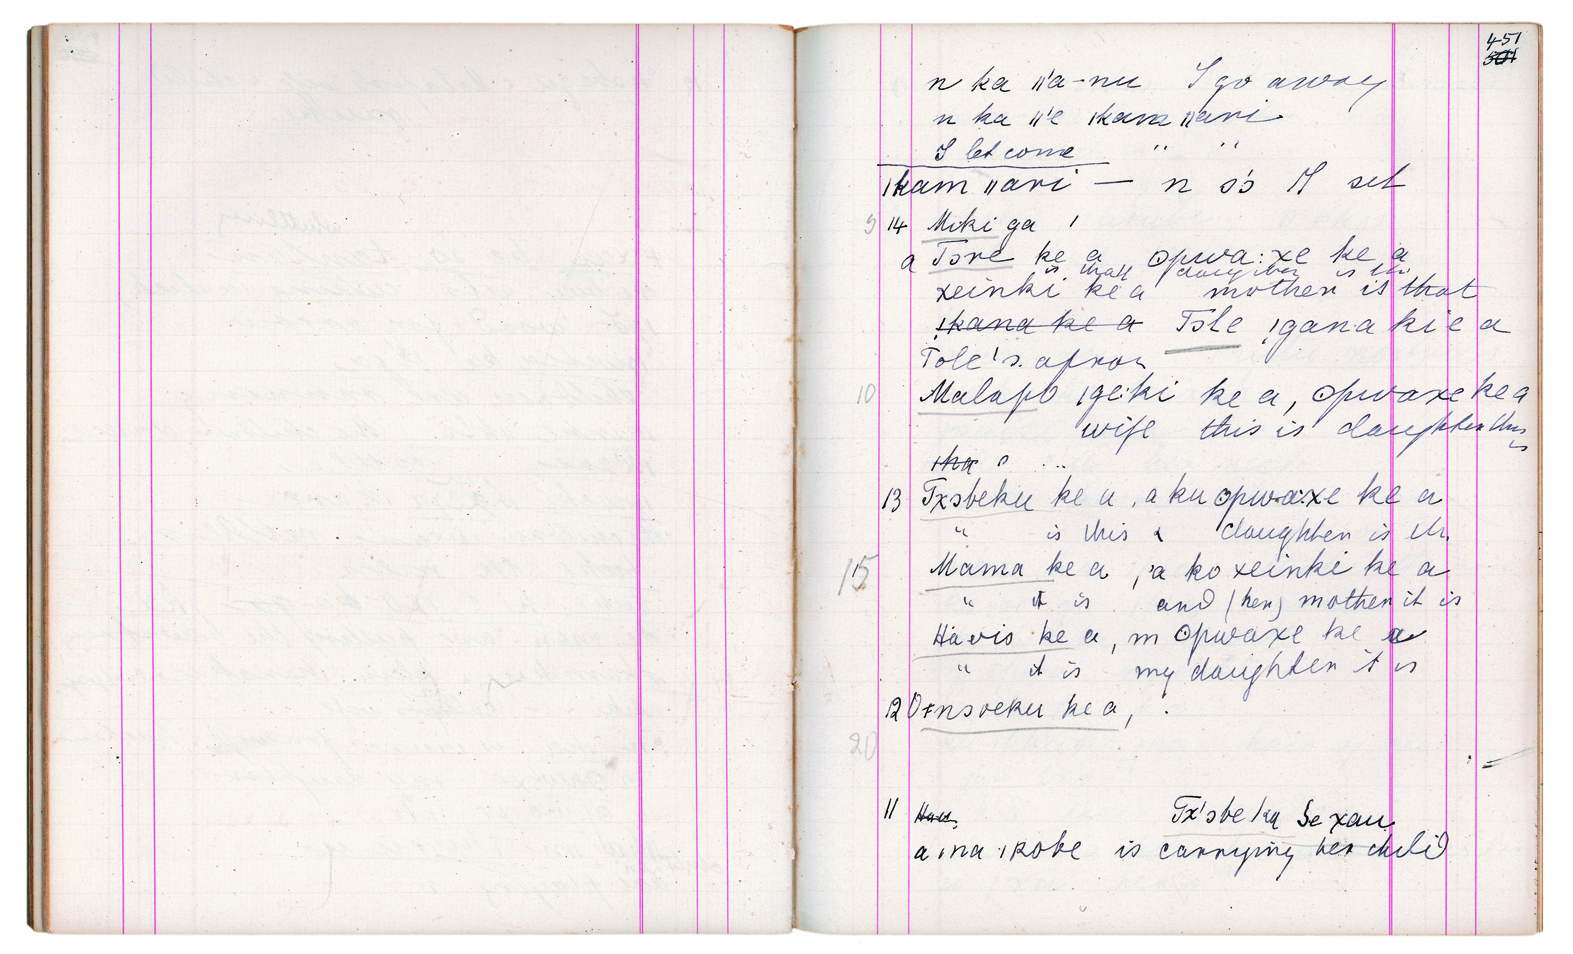 451
n ka ǁ'a-nu I go away
n ka ǁ'e ǀkam ǁari
I let come " "
ǀkam ǁari — n so I set
5 14 Miki ga ǀ
a Tore ke a ʘpwa:xe ke a
is that daughter is this
xeinki ke a mother is that
Tole ǃgana kie a
Tole's apron
10 Malapo ǀgeiki ke a, ʘpwaxe ke a
wife this is daughter this is
13 Txobeku ke a, a ku ʘpwa:xe ke a
" is this & daughter is th.
15 Mama ke a, 'a ko xeinki ke a
" it is and (her) mother it is
Havis ke a, m ʘpwaxe ke a
" it is my daughter it is
12 ke a,
20
11 Tx'obe ku Se xau
a ǀna ǀkobe is carrying her child